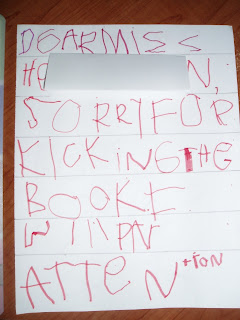 DEAR MISS
HA N,
SORRY FOR
KICKiNG THE
BOOK. I
WIll PAY
ATTeNtION